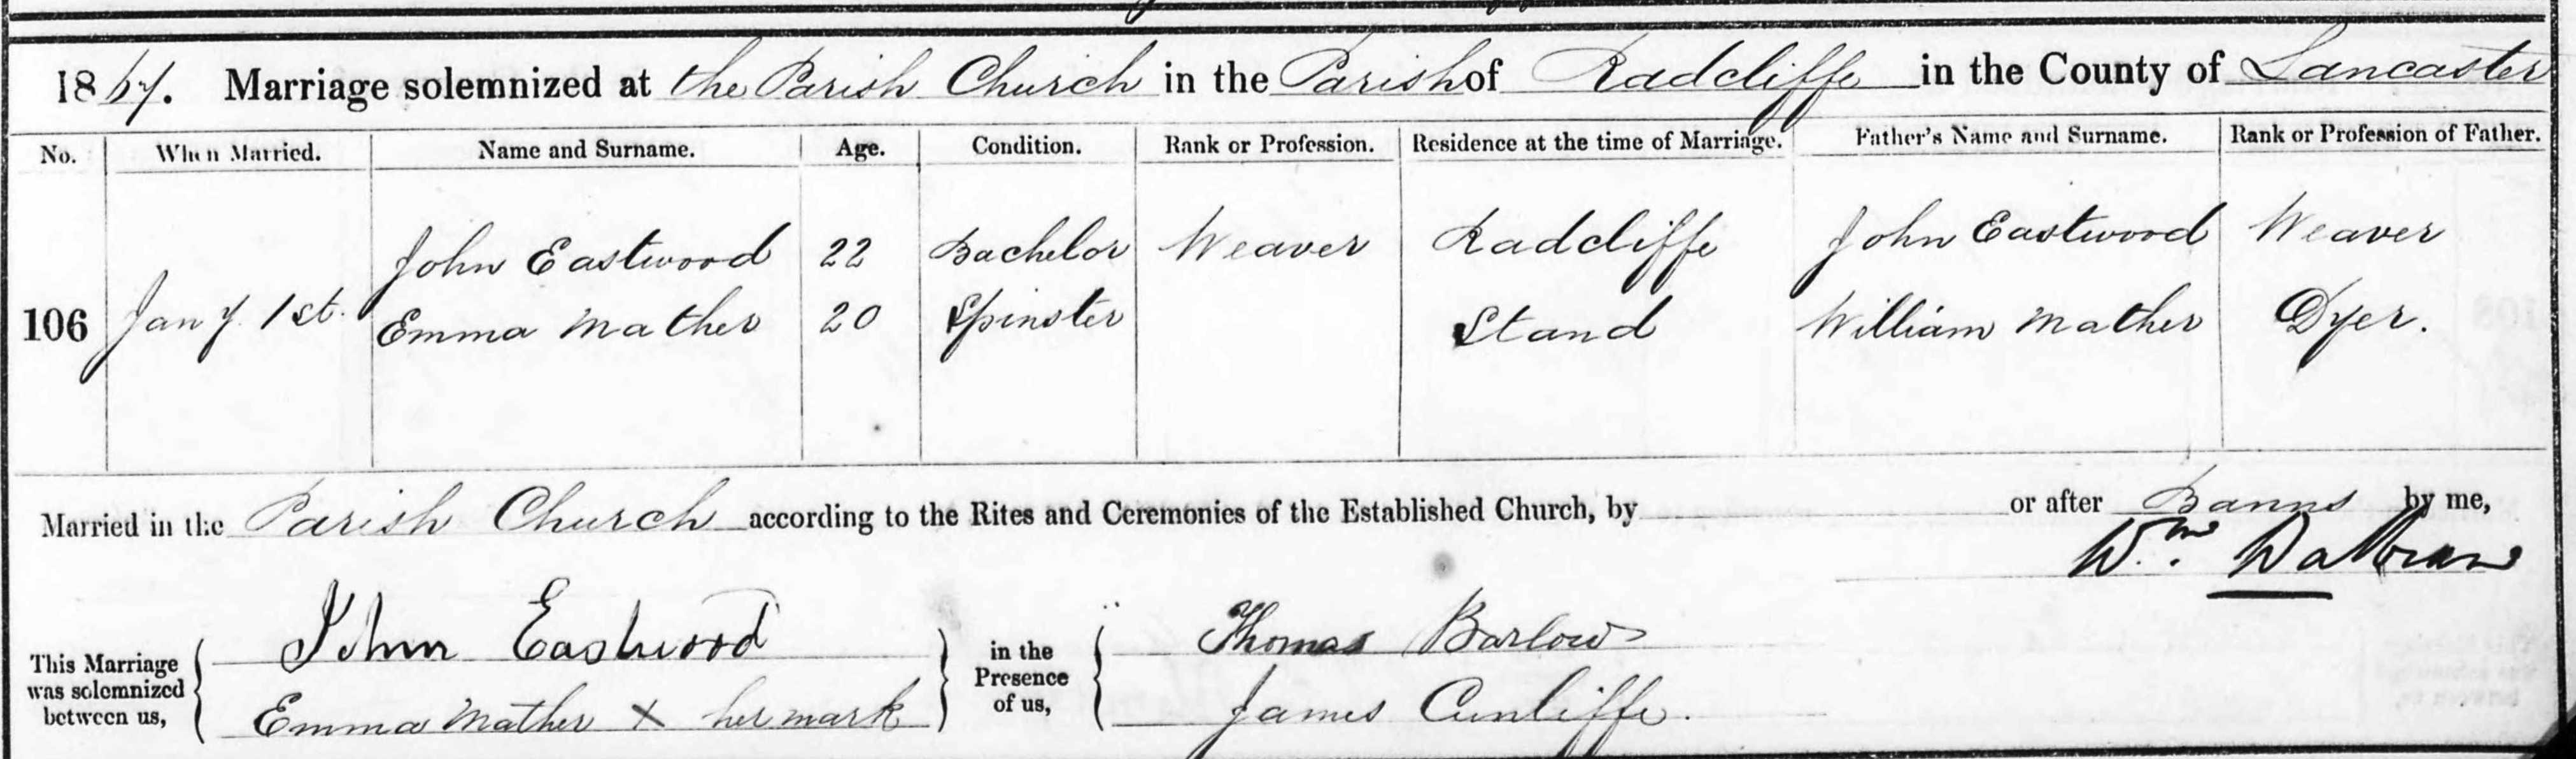 1867. Marriage solemnized at the Parish Church in the Parish of Radcliffe in the County of Lancaster
No. When Married. Name and Surname. Age. Condition. Rank or Profession. Residence at the time of Marriage. Father's Name and Surname. Rank or Profession of Father.
John Eastwood 22 Bachelor Weaver Radcliffe John Eastwood Weaver
106 Jany 1st. Emma Mather 20 Spinster Stand William Mather Dyer.
Married in the Parish Church according to the Rites and Ceremonies of the Established Church, by or after Banns by me,
Wm.
John Eastwood Thomas Barlow
This Marriage was solemnized between us, in the Presence of us,
Emma Mather X her mark James Cunliffe.